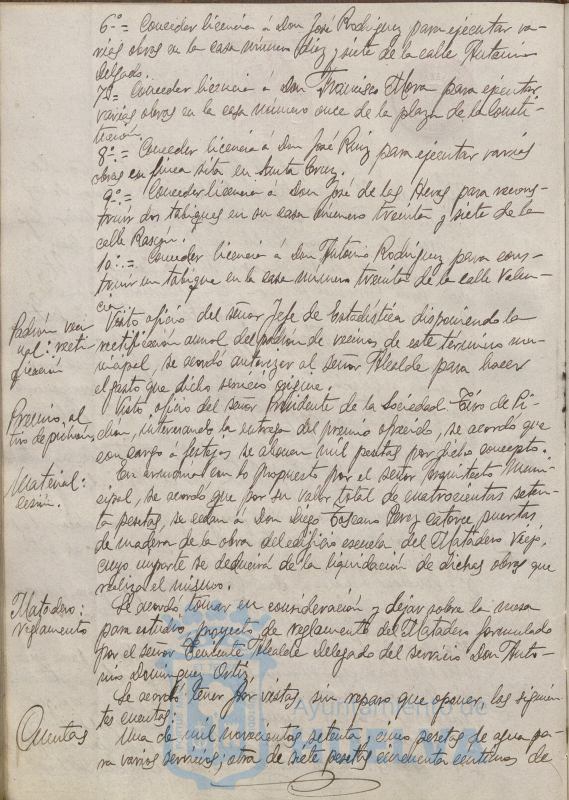 6º = Conceder licencia á Don José Rodriguez para ejecutar va-
rias obras en la casa número diez y siete de la calle Antonio
Delgado.
7º = Conceder licencia á Don Francisco Mora para ejecutar
varias obras en la casa número once de la plaza de la Consti-
tución.
8º = Conceder licencia á don José Ruiz para ejecutar varias
obras en finca sita en Santa Cruz.
9º = Conceder licencia á Don José de las Heras para recons-
truir dos tabiques en su casa número treinta y siete de la
calle Rascón.
10º = Conceder licencia á don Antonio Rodriguez para cons-
truir un tabique en la casa número treinta de la calle Valen-
cia.
Padrón veci
nal: recti
ficación
Visto oficio del señor Jefe de Estadística disponiendo la
rectificación anual del padrón de vecinos de este término mu-
nicipal, se acordó autorizar al señor Alcalde para hacer
el gasto que dicho servicio origine.
Premio al
tiro de pichón
Visto oficio del señor Presidente de la Sociedad Tiro de Pi-
chón, interesando la entrega del premio ofrecido, se acordó que
con cargo a festejos se abonen mil pesetas por dicho concepto.
Material:
cesión.
En armonía con lo propuesto por el señor Arquitecto Muni-
cipal, se acordó que por su valor total de cuatrocientas seten-
ta pesetas, se cedan á Don Diego Toscano Perez catorce puertas
de madera de la obra del edificio escuela del Matadero Viejo,
cuyo importe se deducirá de la liquidación de dichas obras que
realiza el mismo.
Matadero:
reglamento
Se acordó tomar en consideración y dejar sobre la mesa
para estudio, proyecto de reglamento del Matadero formulado
por el señor Teniente Alcalde Delegado del servicio Don Anto-
nio Dominguez Ortiz.
Se acordó tener por vistas, sin reparo que oponer, las siguien-
tes cuentas.
Cuentas
Una de mil novecientas setenta y cinco pesetas de agua pa-
ra varios servicios; otra de siete pesetas cincuenta centimos de
Ayuntamiento de
HUELVA